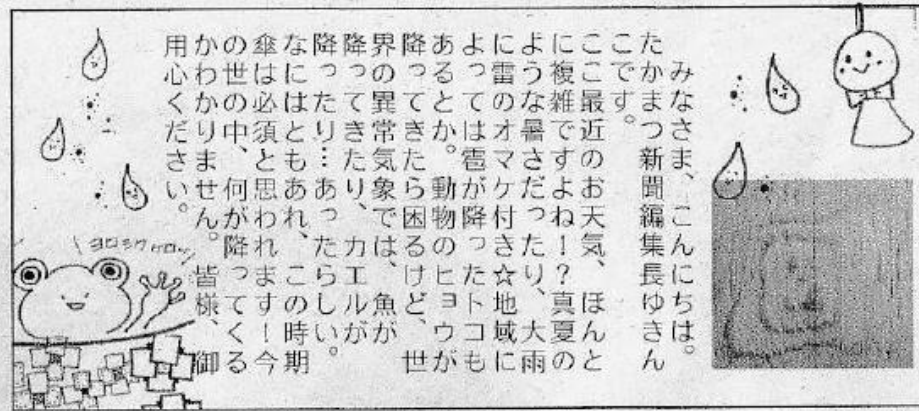 みなさま、こんにちは。
たかまつ新聞編集長ゆきさん
こです。
ここ最近のお天気、ほんと
に複雑ですよね！？真夏の
ような暑さだったり、大雨
に雷のオマケ付き☆地域に
よっては雹が降ったトコも
あるとか。動物のヒョウが
降ってきたら困るけど、世
界の異常気象では、魚が
降ってきたり、カエルが
降ったり…あったらしい。
なにはともあれ、この時期
傘は必須と思われます！今
の世の中、何が降ってくる
かわかりません。皆様、御
用心ください。
ヨロシクケロッ